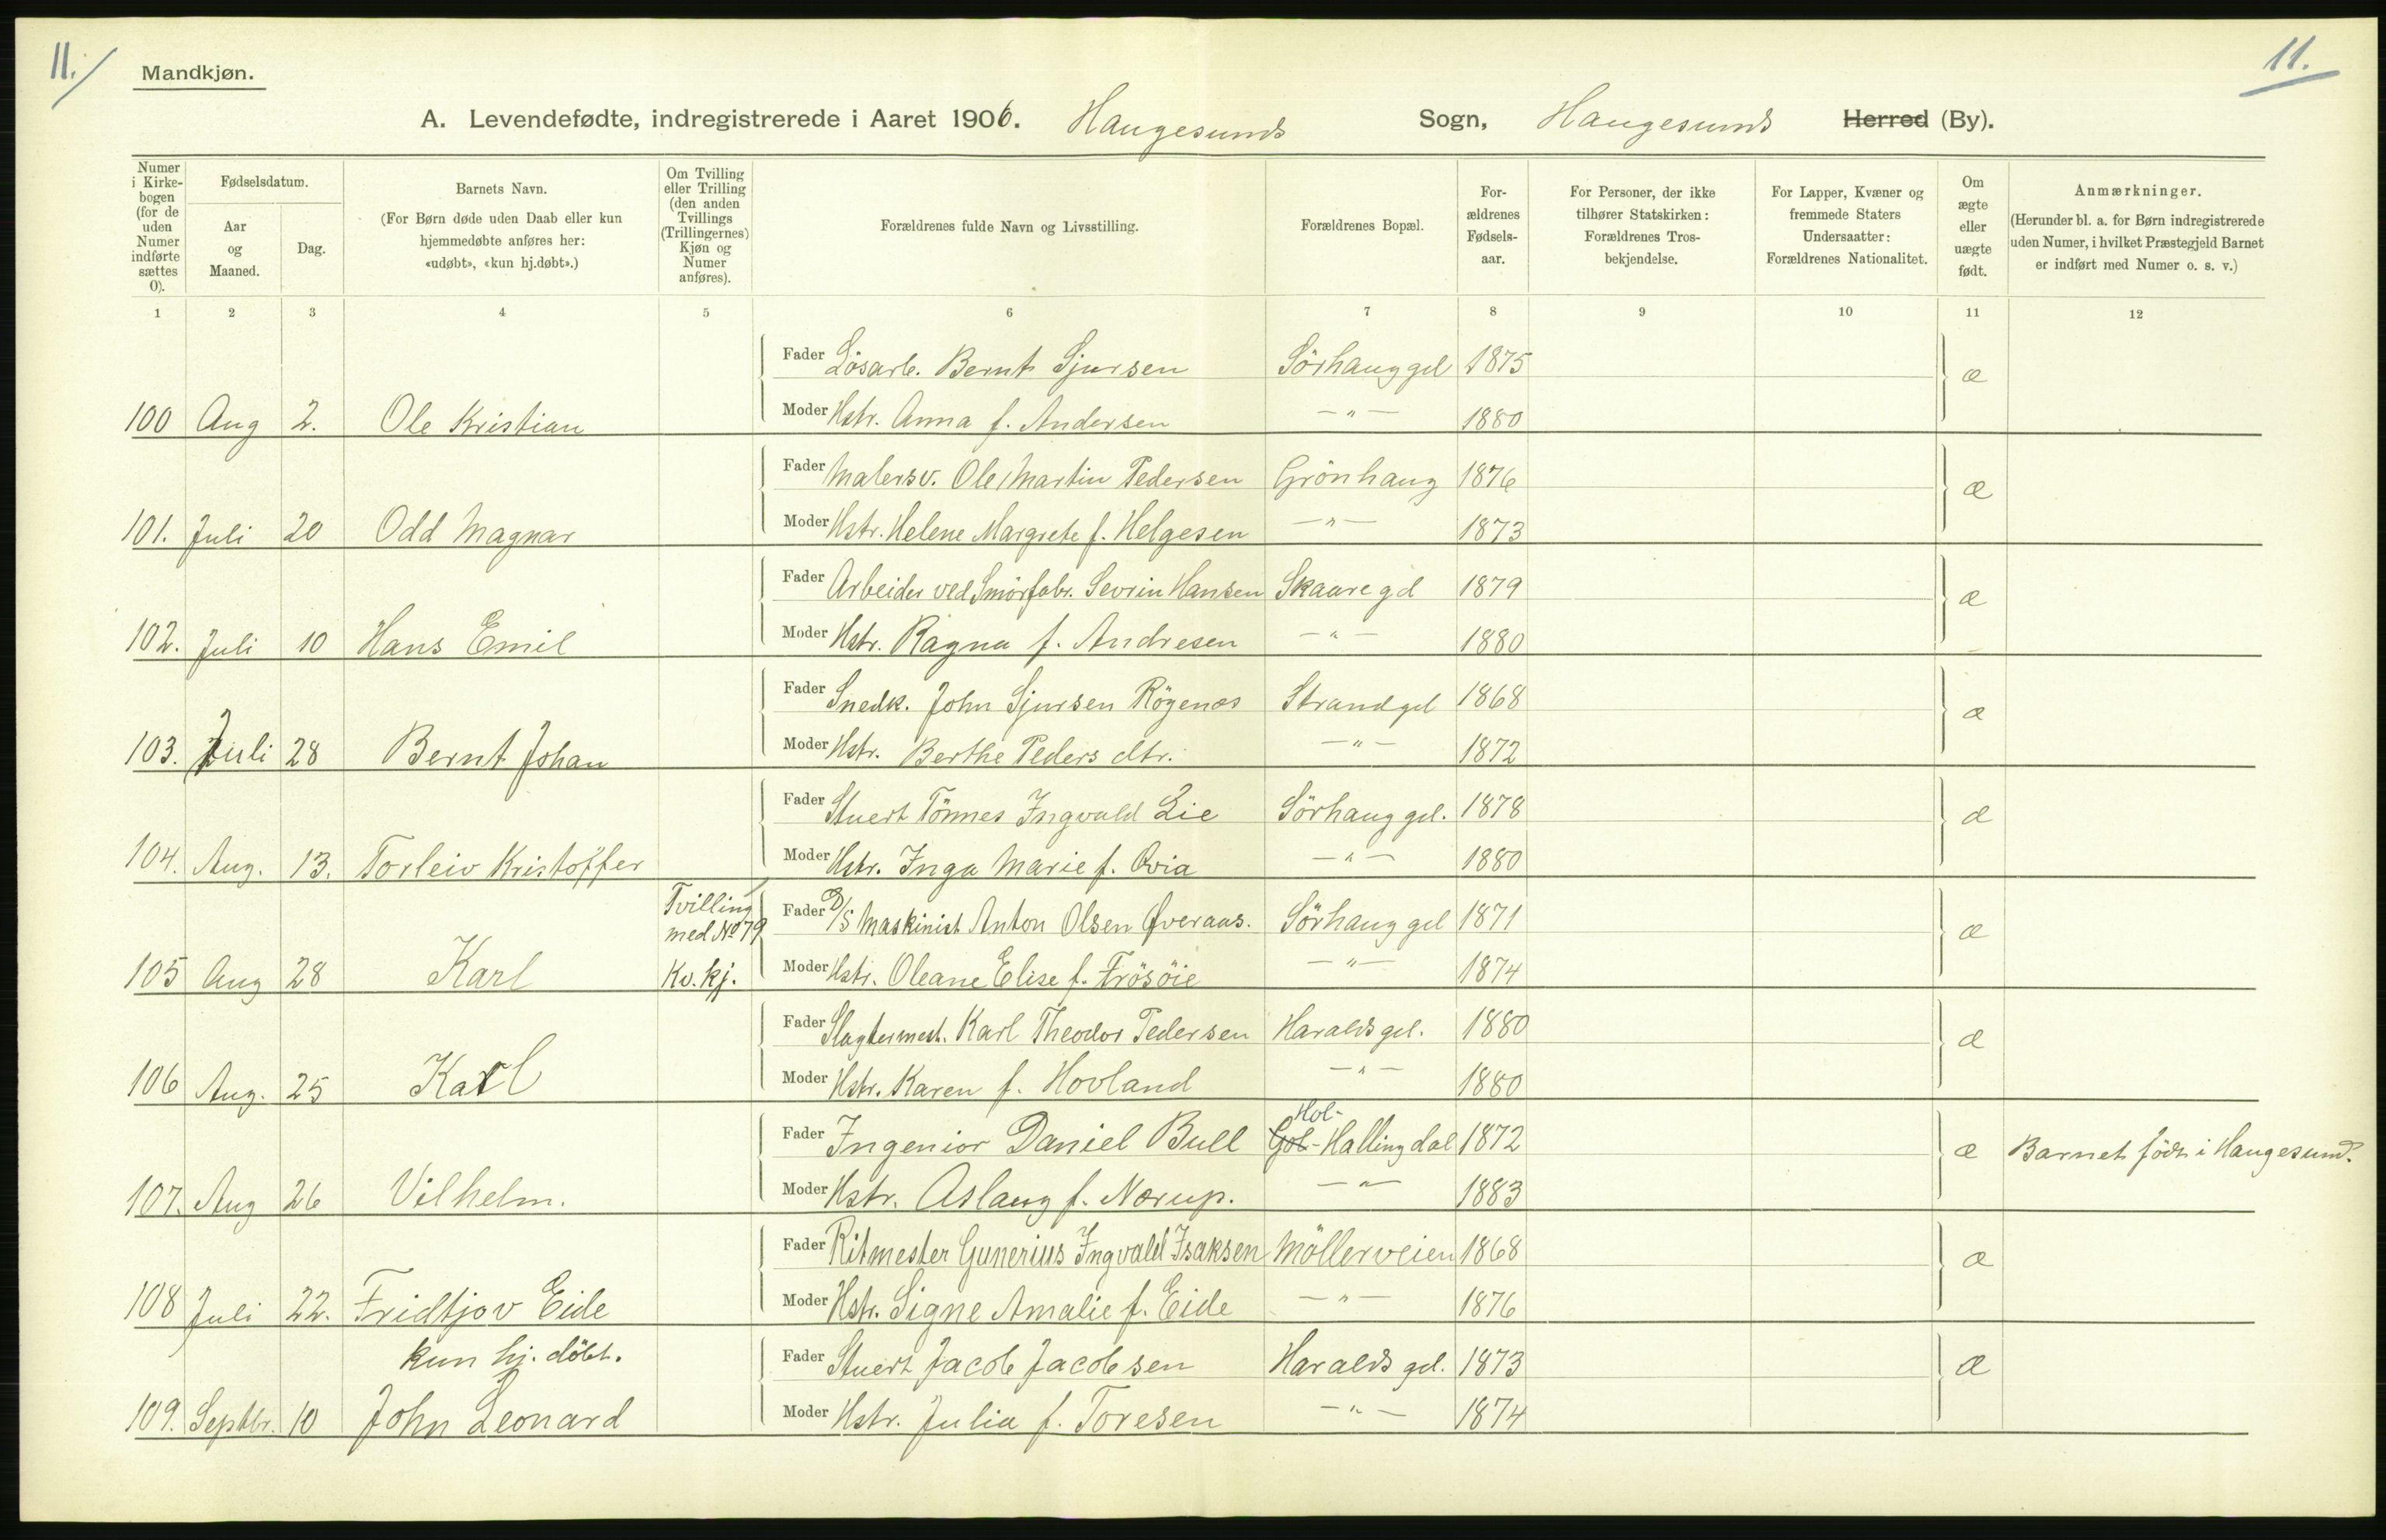 11.
11.
Mandkjøn.
A. Levendefødte, indregistrerede i Aaret 1906. Haugesunds Sogn, Haugesunds Herred (By).
Numer i Kirkebogen (for de uden Numer indførte sættes 0).
Fødselsdatum.
Aar og Maaned.
Dag.
Barnets Navn.
(For Børn døde uden Daab eller kun
hjemmedøbte anføres her:
«udøbt», «kun hj.døbt».)
Om Tvilling eller Trilling (den anden Tvillings (Trillingernes) Kjøn og Numer anføres).
Forældrenes fulde Navn og Livsstilling.
Forældrenes Bopæl.
For-
ældrenes
Fødsels-
aar.
For Personer, der ikke
tilhører Statskirken:
Forældrenes Tros-
bekjendelse.
For Lapper, Kvæner og
fremmede Staters
Undersaatter:
Forældrenes Nationalitet.
Om
ægte
eller
uægte
født.
Anmærkninger.
(Herunder bl. a. for Børn indregistrerede
uden Numer, i hvilket Præstegjeld Barnet
er indført med Numer o. s. v.)
1 2 3 4 5 6 7 8 9 10 11 12
Fader Lösarb. Bernt Sjursen Sörhauggd 1875 æ
100 Aug 2. Ole Kristian Moder Hstr. Anna f. Andersen -"- 1880
Fader Malersv. Ole Martin Pedersen Grönhaug 1876 æ
101. Juli 20 Odd Magnar Moder Hstr. Helene Margrete f. Helgesen -"- 1873
Fader Arbeider ved Smörfabr. Sevrin Hansen Skaaregd 1879 æ
102. Juli 10 Hans Emil Moder Hstr. Ragna f. Andresen -"- 1880
Fader Snedk. John Sjursen Rögenæs Strandgd 1868 æ
103. Juli 28 Bernt Johan Moder Hstr. Berthe Peders dtr. -"- 1872
Fader Stuert Tönnes Ingvald Lie Sörhauggd. 1878 æ
104. Aug. 13. Torleiv Kristoffer Moder Hstr. Inga Marie f. Qvia -"- 1880
Tvilling
med No 79 Fader D/S Maskinist Anton Olsen Øveraas. Sörhauggd 1871 æ
105 Aug 28 Karl Kv. kj. Moder Hstr. Oleane Elise f. Frösöie -"- 1874
Fader Slagtermest. Karl Theodor Pedersen Haraldsgd. 1880 æ
106 Aug. 25 Karl Moder Hstr. Karen f. Hovland -"- 1880
Hol-
Fader Ingeniør Daniel Bull Gol-Hallingdal 1872 æ Barnet född i Haugesund.
107. Aug 26 Vilhelm. Moder Hstr. Aslaug f. Nærup. -"- 1883
Fader Ritmester Gunerius Ingvald Isaksen Möllerveien 1868 æ
108 Juli 22. Fridtjov Eide Moder Hstr. Signe Amalie f. Eide -"- 1876
kun hj. döbt. Fader Stuert Jacob Jacobsen Haraldsgd. 1873 æ
109. Septbr. 10 John Leonard Moder Hstr. Julia f. Toresen -"- 1874